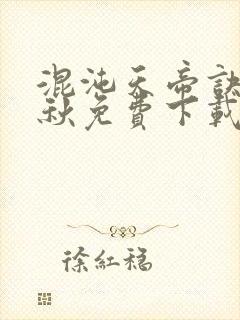 混沌天帝訣
秋免費下載
徐紅稳